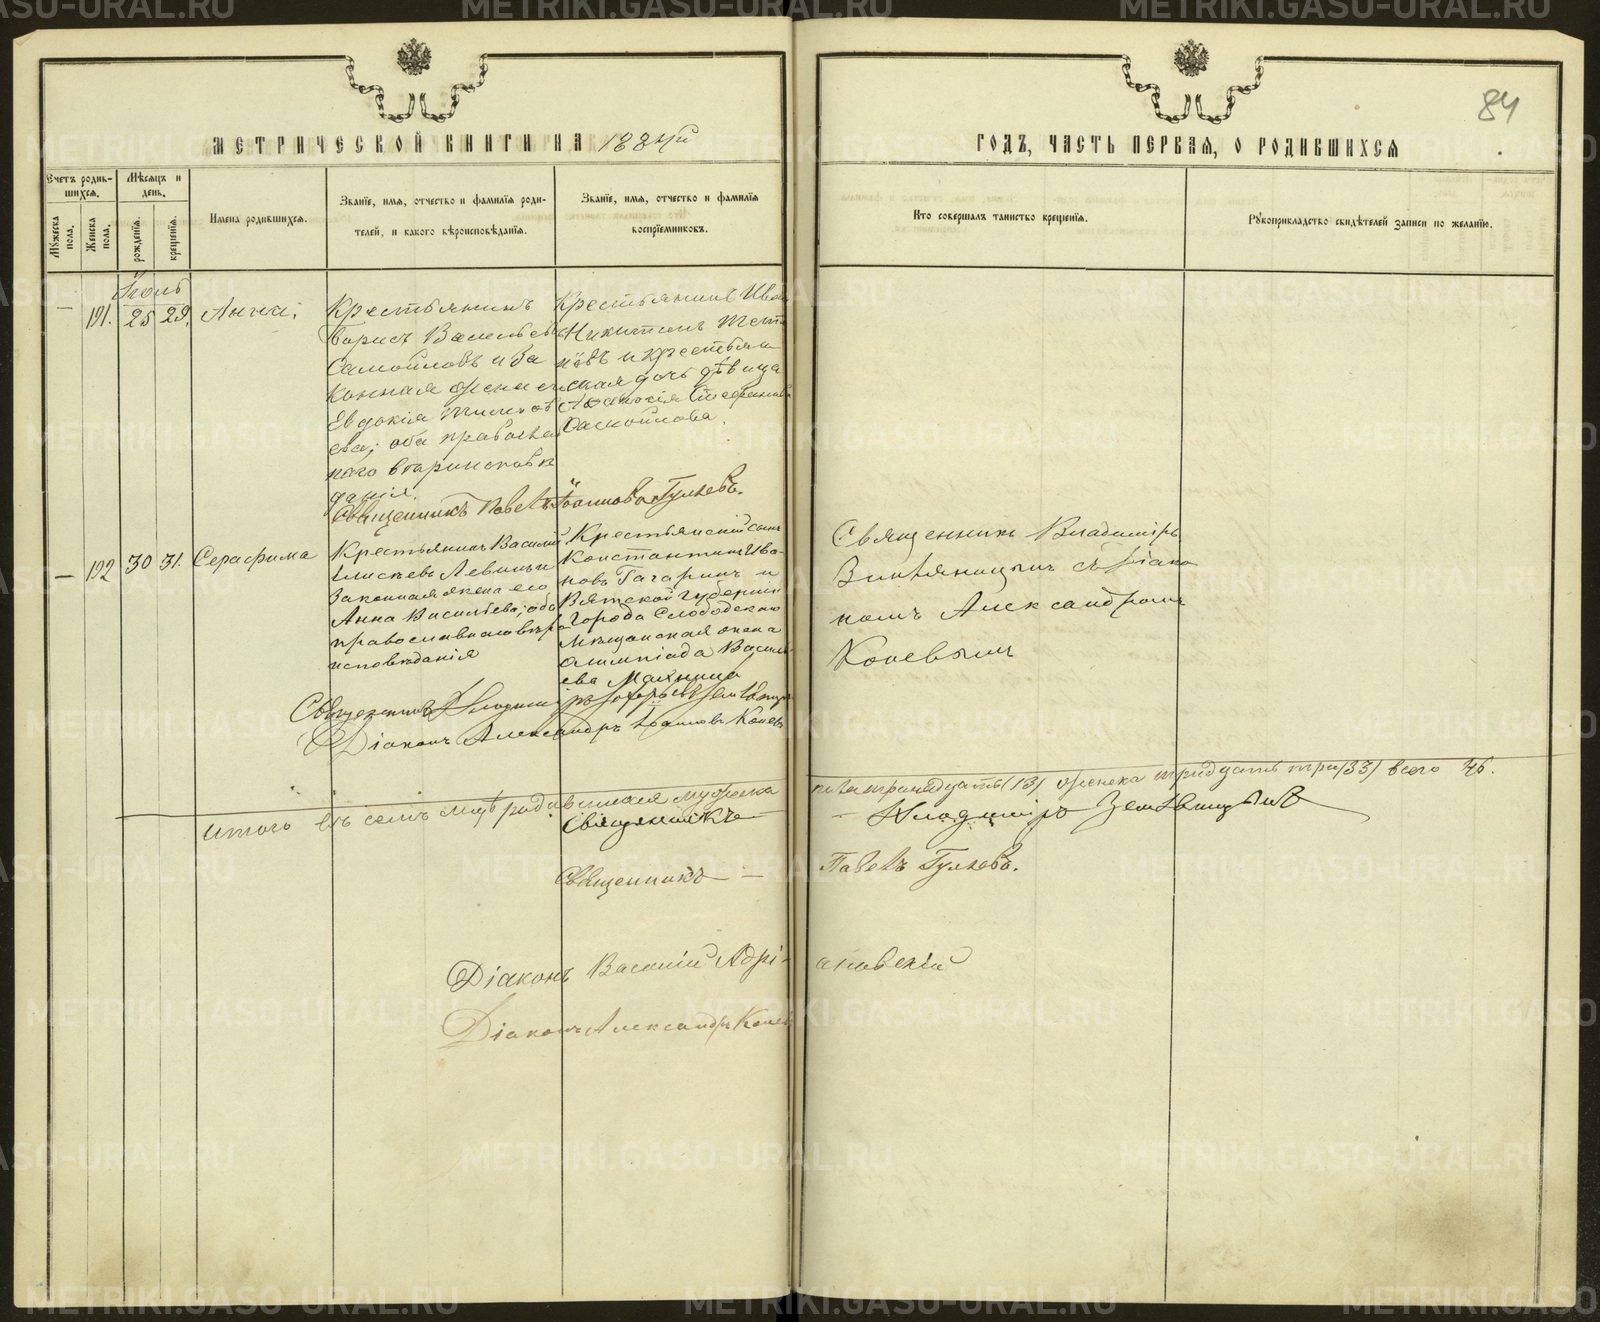 84
МЕТРИЧЕСКОЙ КНИГИ НА 1884й
ГОДЪ, ЧАСТЬ ПЕРВАЯ, О РОДИВШИХСЯ
Счетъ родив-
шихся.
Мѣсяцъ и
день.
Мужеска
пола.
Женска
пола.
рожденія.
крещенія.
Имена родившихся.
Званіе, имя, отчество и фамилія роди-
телей, и какого вѣроисповѣданія.
Званіе, имя, отчество и фамилія
воспріемниковъ.
Кто совершалъ таинство крещенія.
Рукоприкладство свидѣтелей записи по желанію.
Іюль
— 191. 25 29. Анна;
Крестьянинъ
Борисъ Васильевъ
Самойловъ и За
конная жена его
Евдокія
ева; оба православ
наго вѣроисповѣ
данія.
Крестьянинъ Иванъ
Никитинъ
новъ и крестьян
ская дочь дѣвица
Самойлова.
Священникъ Павелъ Іоанновъ Гуляевъ.
— 192 30 31. Серафима
Крестьянинъ Василій
Елисѣевъ Левинъ и
Законная жена его
Анна Васильева; оба
православнаго вѣро
исповѣданія
Крестьянскій сынъ
Константинъ Ива-
новъ Гагаринъ и
Вятской Губерніи
Города Слободскаго
Мѣщанская жена
Олимпіада Василь-
ева
Священникъ Владиміръ
съ Діако
номъ Александромъ
Коневымъ
Священникъ Владиміръ
Діаконъ Александръ Іоанновъ Коневъ
Итого въ семъ мцѣ родившихся мужска
пола тринадцать (13) женска тридцать три (33) всего 46.
Священникъ — Владиміръ
Священникъ — Павелъ Гуляевъ.
Діаконъ Василій Адрі-
ановскій
Діаконъ Александръ Коневъ
METRIKI.GASO-URAL.RU